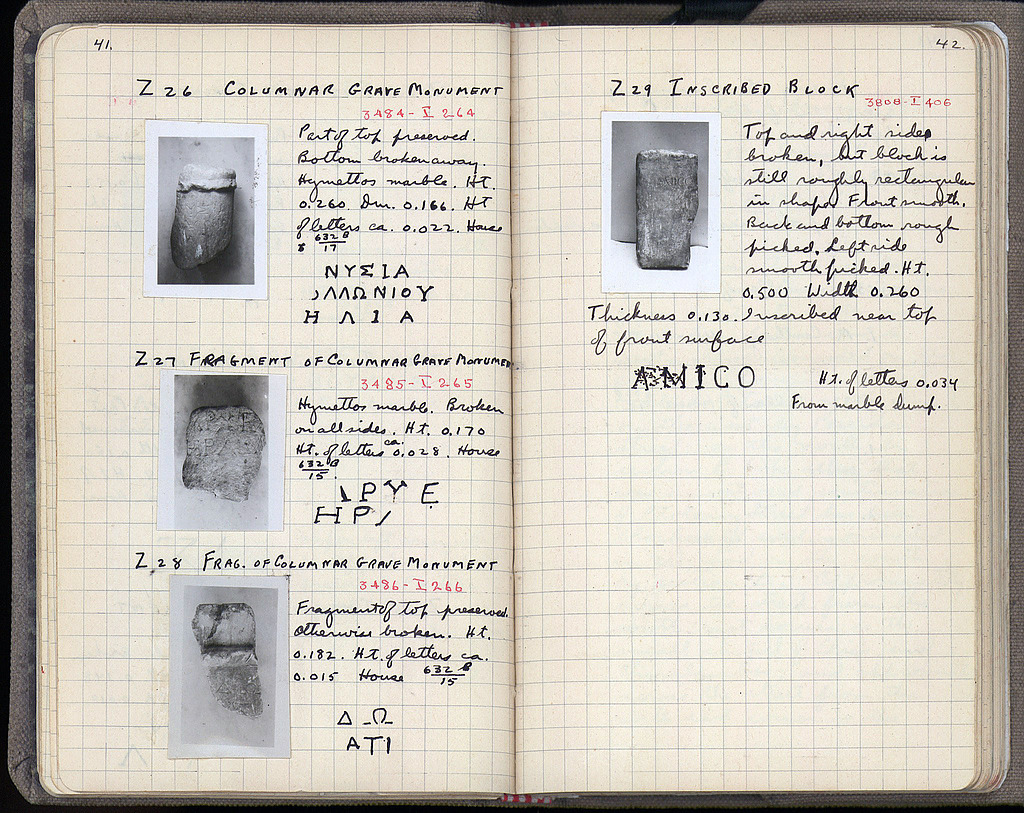 41.
Z 26 COLUMNAR GRAVE MONUMENT
3484-I 264
Part of top preserved.
Bottom broken away.
Hymettos marble. Ht.
0.260. Dm. 0.166. Ht
of letters ca. 0.022. House
632 B
17
ΝΥΣΙΑ
ΛΛΩΝΙΟΥ
Η Λ Ι Α
Z 27 FRAGMENT OF COLUMNAR GRAVE MONUMENT
3485-I 265
Hymettos marble. Broken
on all sides. Ht. 0.170
Ht. of letters ca. 0.028. House
632 B
15.
Ρ Υ Ε
Η Ρ
Z 28 FRAG. OF COLUMNAR GRAVE MONUMENT
3486-I 266
Fragment of top preserved.
Otherwise broken. Ht.
0.182. Ht. of letters ca.
0.015 House 632 B
15
Δ Ω
ΑΤΙ
42.
Z 29 INSCRIBED BLOCK
3808-I 406
Top and right sides
broken, but block is
still roughly rectangular
in shape. Front smooth.
Back and bottom rough
picked. Left side
smooth picked. Ht.
0.500 Width 0.260
Thickness 0.130. Inscribed near top
of front surface
AMICO
Ht. of letters 0.034
From marble dump.